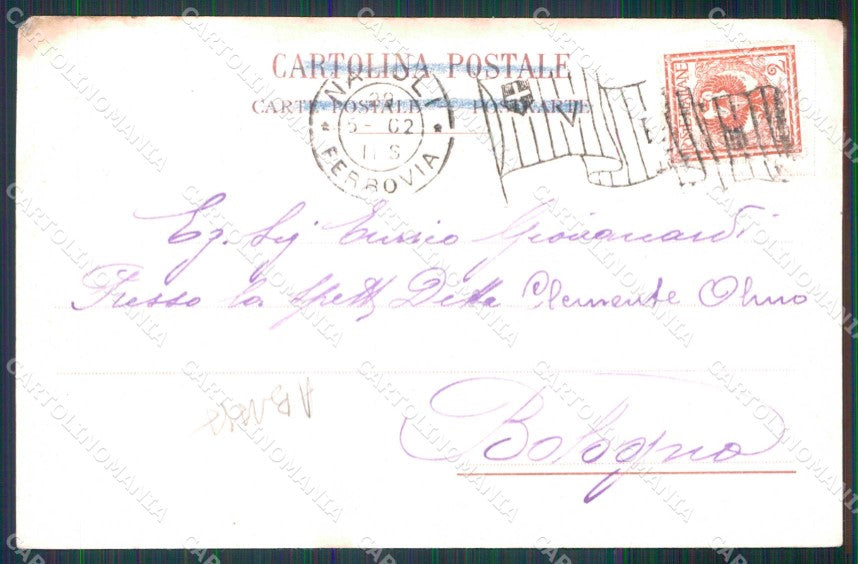 CARTOLINA POSTALE
CARTE POSTALE POSTCARTE
NAPOLI
28
5- 02
11 S
* FERROVIA *
Eg. Sig Giovanardi
Presso la Spett Ditta Clemente Olmo
Bologna
CARTOLINOMANIA